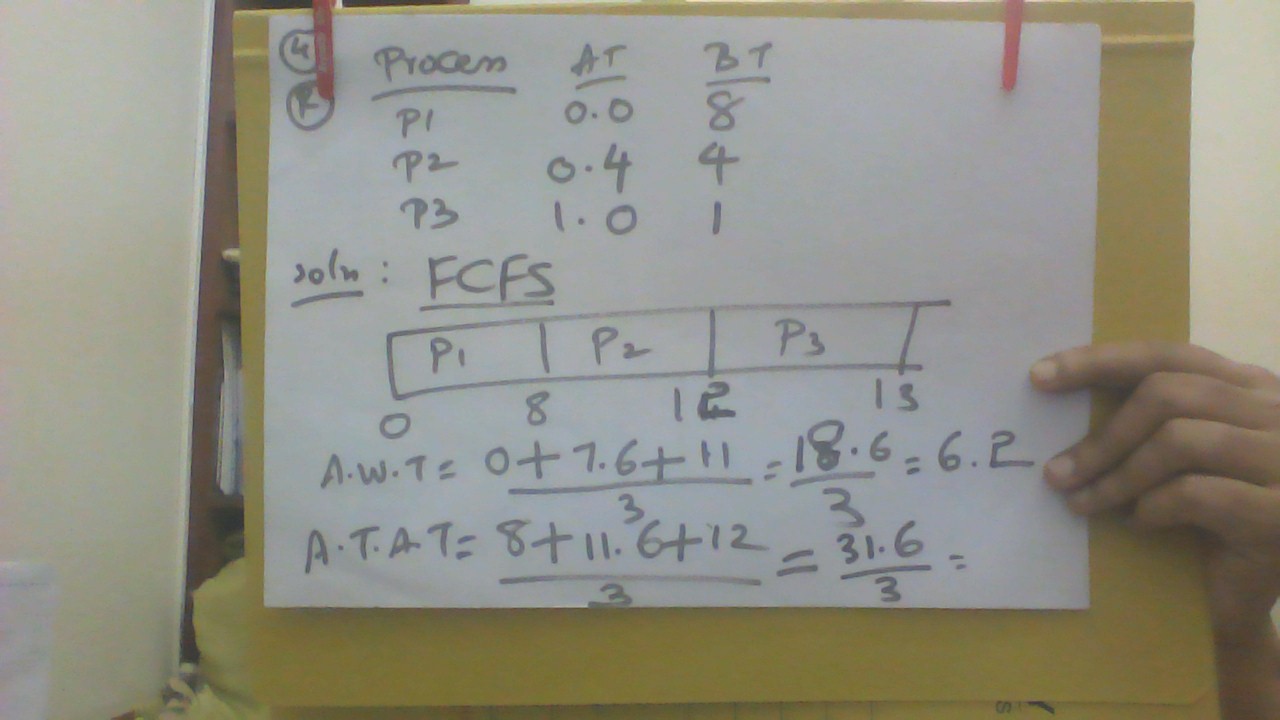 Process AT BT
P1 0.0 8
P2 0.4 4
P3 1.0 1
soln : FCFS
P1 P2 P3
0 8 12 13
A.W.T = 0+7.6+11 / 3 = 18.6 / 3 = 6.2
A.T.A.T = 8+11.6+12 / 3 = 31.6 / 3 =